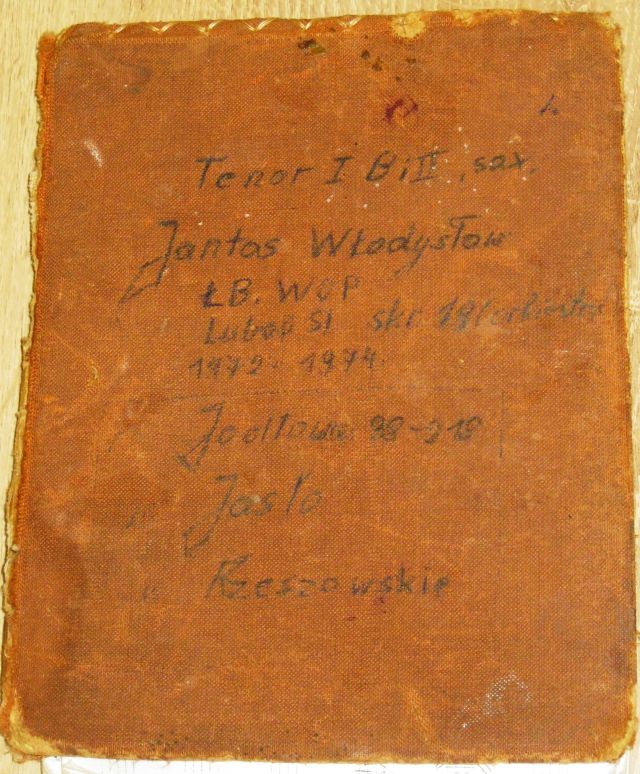 Tenor I B i II, sax.
Jantas Władysław
ŁB. WOP
Lubań Śl skr. 19/orkiestra
1972-1974.
Jodłowa 38-218
Jasło
Rzeszowskie